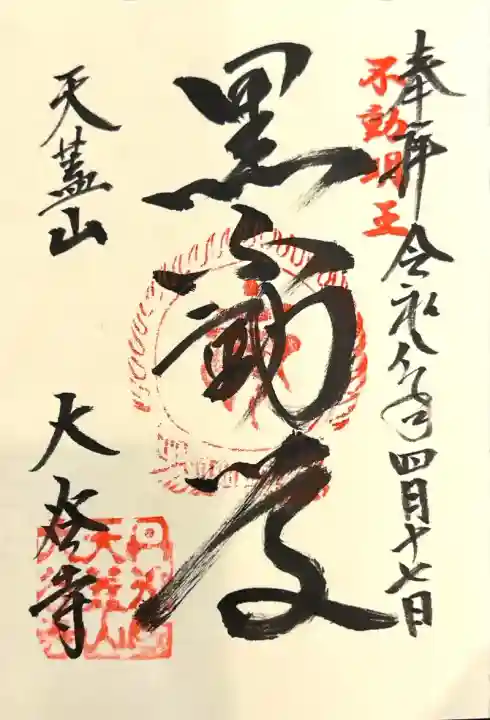 奉拝 令和八年四月十七日
不動明王
黒不動尊
天蓋山
大発寺